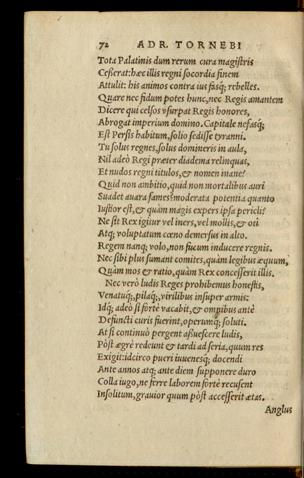 72 ADR. TORNEBI
Tota Palatinis dum rerum cura magistris
Cesserat: hæc illis regni socordia finem
Attulit: his animos contra ius fasq́; rebelles.
Quare nec fidum potes hunc, nec Regis amantem
Dicere qui celsos vsurpat Regis honores,
Abrogat imperium domino. Capitale nefasq́;
Est Persis habitum, solio sedisse tyranni.
Tu solus regnes, solus domineris in aula,
Nil adeò Regi præter diadema relinquas,
Et nudos regni titulos, & nomen inane?
Quid non ambitio, quid non mortalibus auri
Suadet auara fames? moderata potentia quanto
Iustior est, & quàm magis expers ipsa pericli?
Ne sit Rex igitur vel iners, vel mollis, & oti
Atq; voluptatum cœno demersus in alto.
Regem nanq; volo, non fucum inducere regnis.
Nec sibi plus sumant comites, quàm legibus æquum,
Quàm mos & ratio, quàm Rex concesserit illis.
Nec verò ludis Reges prohibemus honestis,
Venatuq́;, pilaq́;, virilibus insuper armis:
Idq́; adeò si fortè vacabit, & omnibus antè
Defuncti curis fuerint, operumq́; soluti.
At si continuò pergent assuescere ludis,
Pòst ægrè redeunt & tardi ad seria, quum res
Exigit: idcirco pueri iuuenesq́; docendi
Ante annos atq; ante diem supponere duro
Colla iugo, ne ferre laborem fortè recusent
Insolitum, grauior quum pòst accesserit ætas.
Anglus